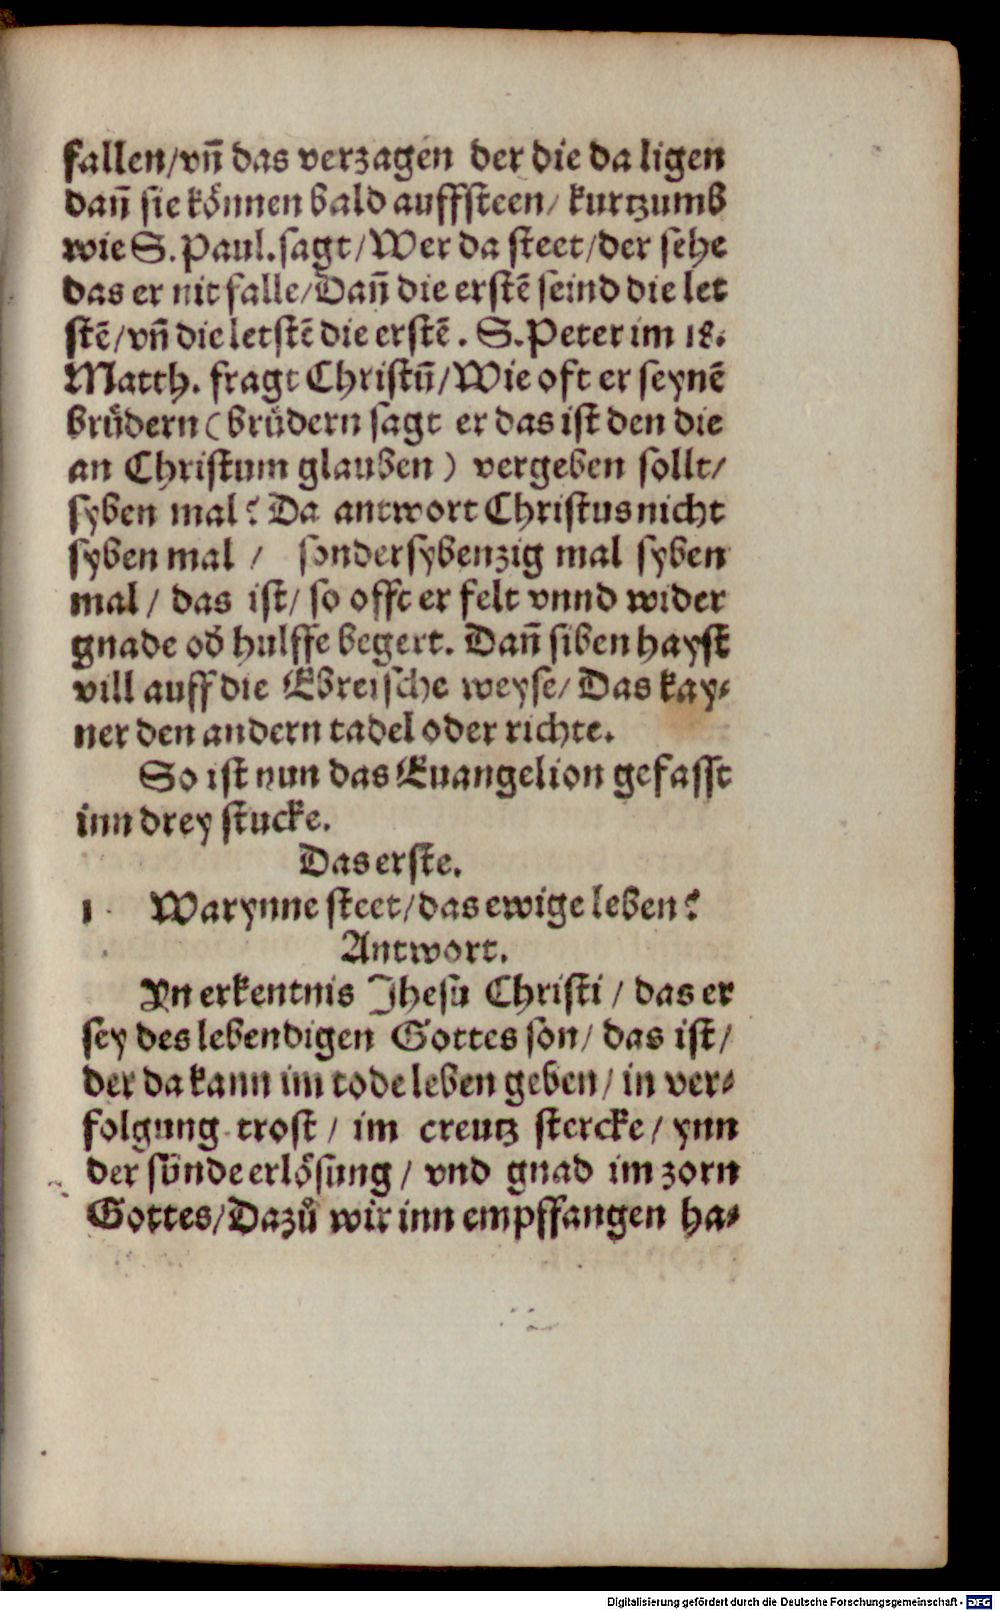 fallen/vn̄ das verzagen der die da ligen
dan̄ sie können bald auffsteen/ kurtzumb
wie S. Paul. sagt/Wer da steet/der sehe
das er nit falle/Dan̄ die erstē seind die let
stē/vn̄ die letstē die erstē. S. Peter im 18.
Matth. fragt Christū/Wie oft er seynē
brüdern (brüdern sagt er das ist den die
an Christum glauben) vergeben sollt/
syben mal? Da antwort Christus nicht
syben mal / sonder sybenzig mal syben
mal/ das ist/ so offt er felt vnnd wider
gnade oď hulffe begert. Dan̄ siben hayst
vill auff die Ebreische weyse/ Das kay-
ner den andern tadel oder richte.
So ist nun das Euangelion gefasst
inn drey stucke.
Das erste.
1 Warynne steet/das ewige leben?
Antwort.
Yn erkentnis Jhesu Christi / das er
sey des lebendigen Gottes son/ das ist/
der da kann im tode leben geben/ in ver-
folgung trost / im creutz stercke/ ynn
der sünde erlösung / vnd gnad im zorn
Gottes/Dazů wir inn empffangen ha-
Digitalisierung gefördert durch die Deutsche Forschungsgemeinschaft - DFG